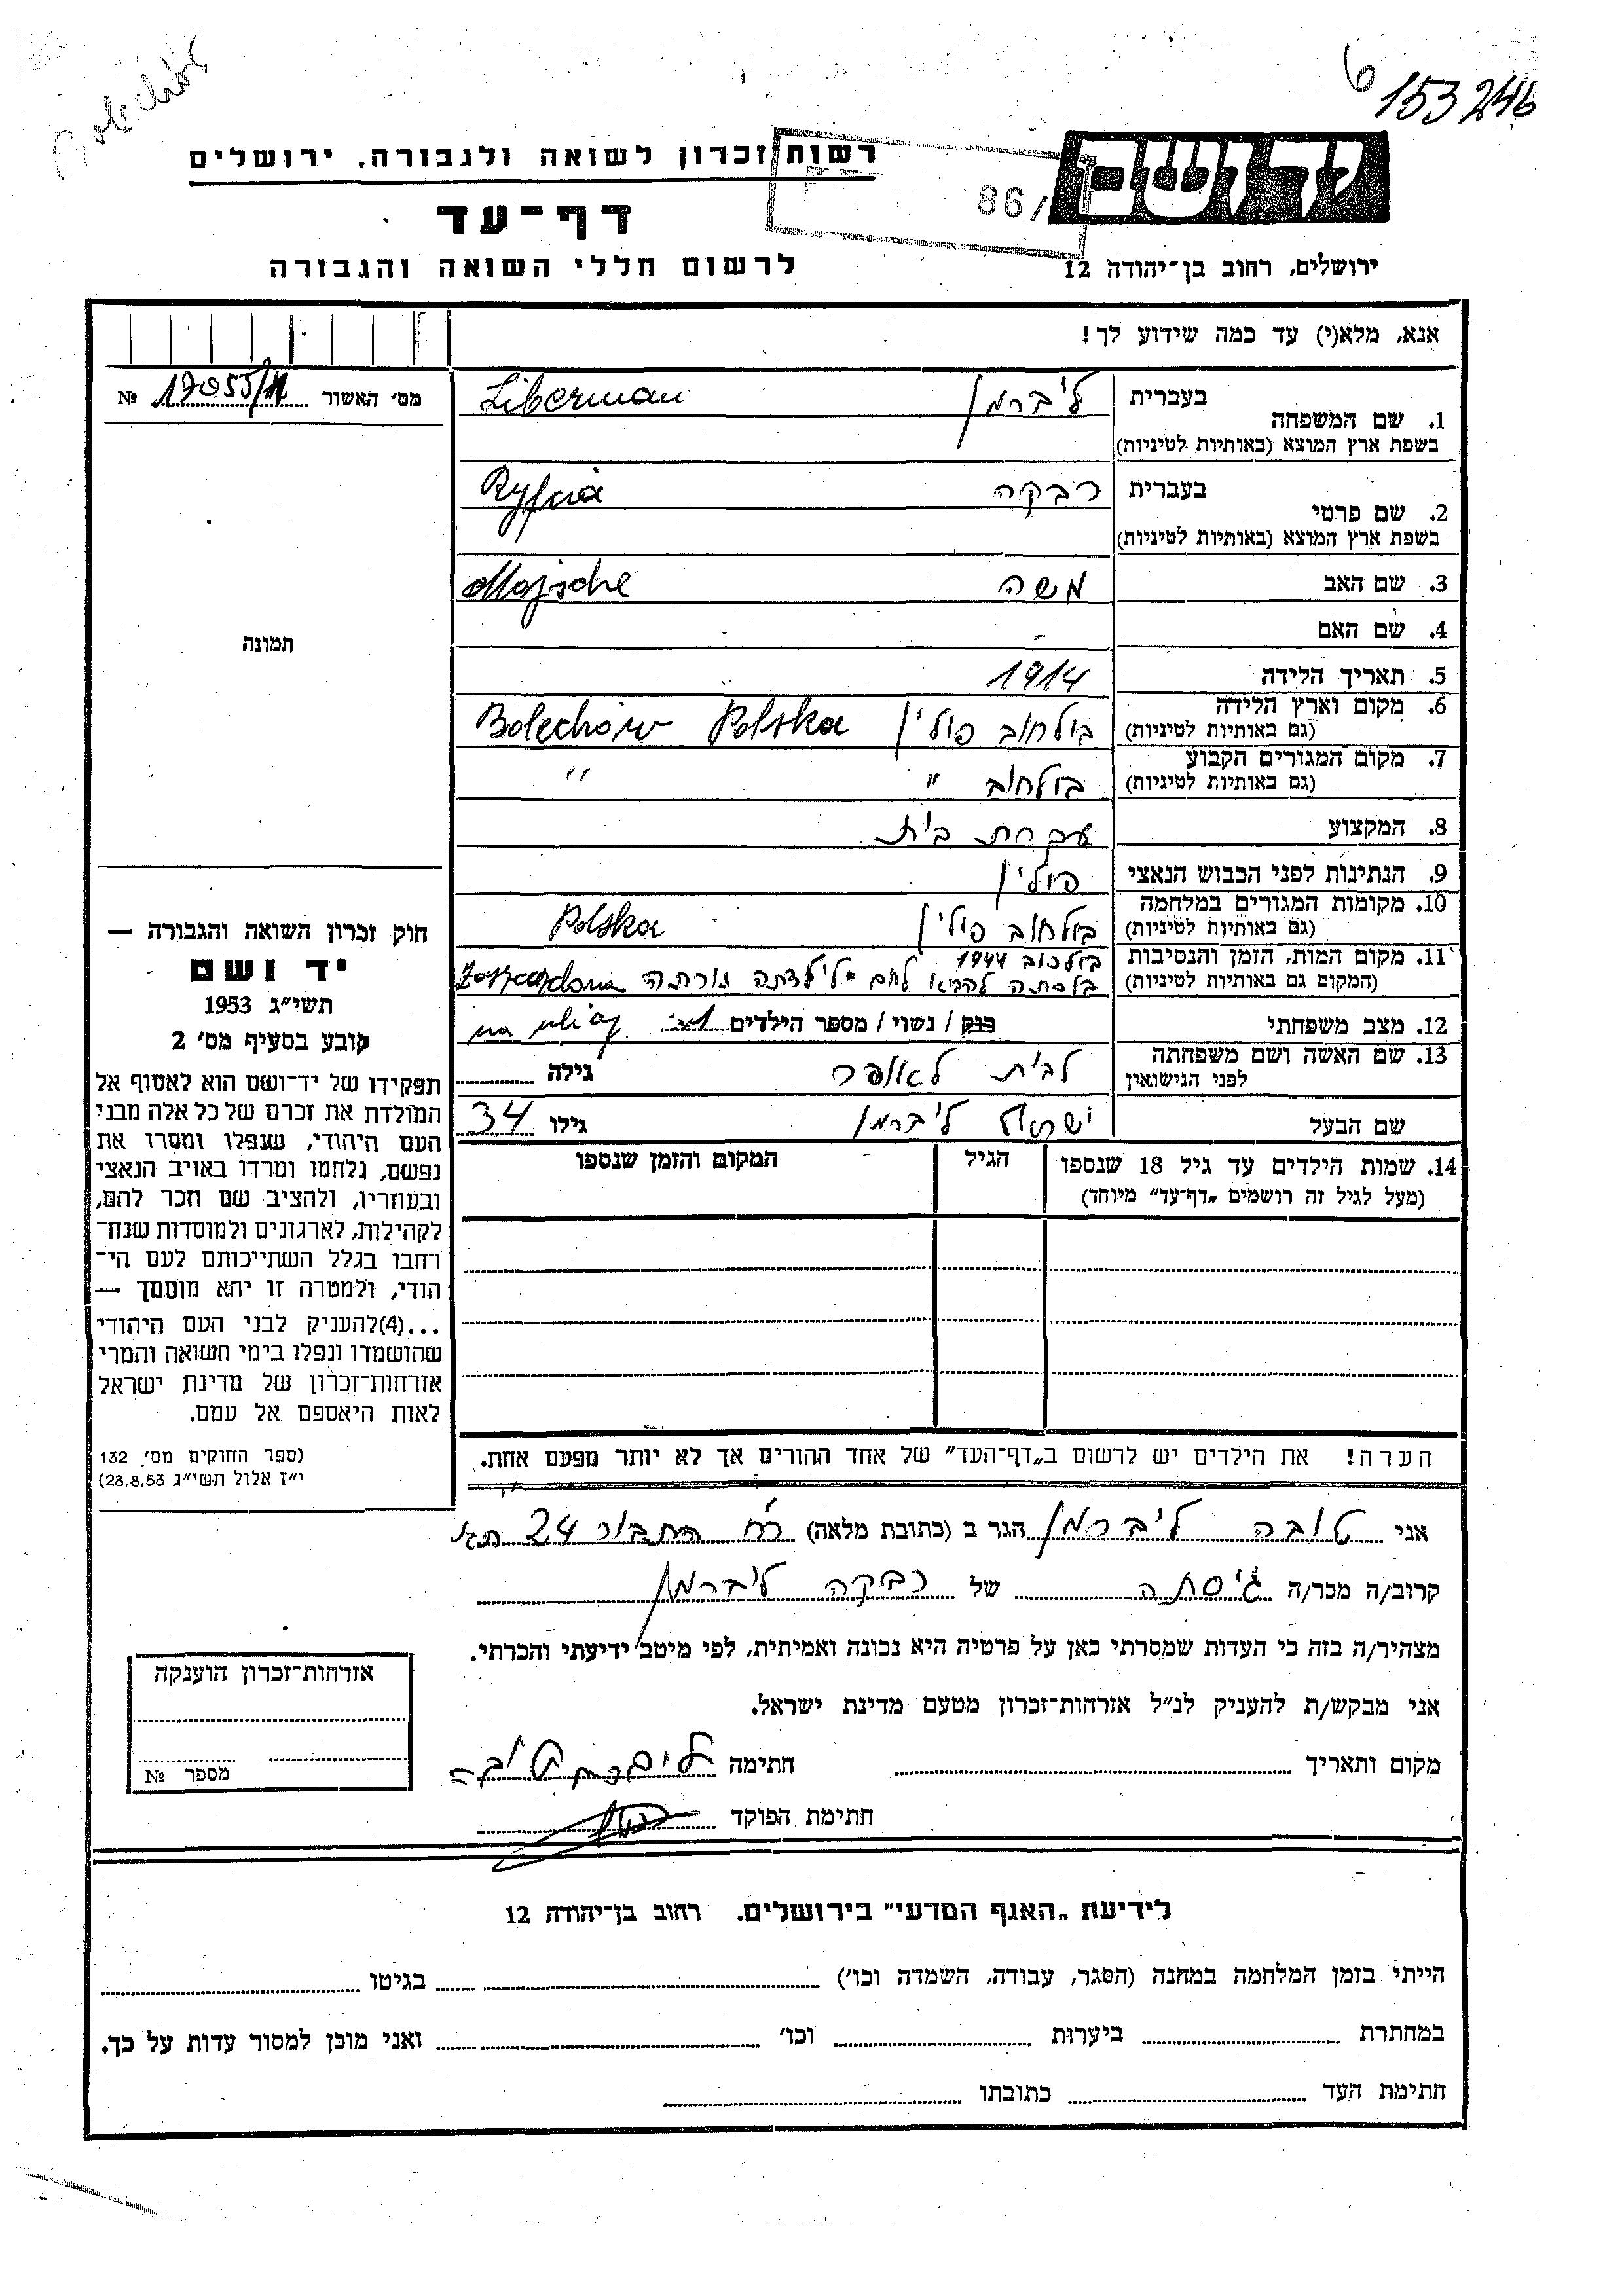 Bolechów
6
153246
רשות זכרון לשואה ולגבורה, ירושלים
86/
יד ושם
דף-עד
לרשום חללי השואה והגבורה
ירושלים, רחוב בן-יהודה 12
אנא, מלא(י) עד כמה שידוע לך!
מס' האשור 17055/ №
בעברית ליברמן Liberman
1. שם המשפחה
בשפת ארץ המוצא (באותיות לטיניות)
בעברית רבקה Ryfka
2. שם פרטי
בשפת ארץ המוצא (באותיות לטיניות)
3. שם האב משה Mojsche
4. שם האם -
תמונה
5. תאריך הלידה 1914
6. מקום וארץ הלידה
(גם באותיות לטיניות) בולחוב פולין Bolechów Polska
7. מקום המגורים הקבוע
(גם באותיות לטיניות) בולחוב " "
8. המקצוע עקרת בית
9. הנתינות לפני הכבוש הנאצי פולין
10. מקומות המגורים במלחמה
(גם באותיות לטיניות) בולחוב פולין Polska
11. מקום המות, הזמן והנסיבות בולחוב 1944
(המקום גם באותיות לטיניות) בלכתה להביא לחם לילדתה נורתה
12. מצב משפחתי רווק / נשוי / מספר הילדים 1
13. שם האשה ושם משפחתה
לפני הנישואין לבית לאופר גילה
שם הבעל ישראל ליברמן גילו 34
14. שמות הילדים עד גיל 18 שנספו הגיל המקום והזמן שנספו
(מעל לגיל זה רושמים „דף-עד" מיוחד)
חוק זכרון השואה והגבורה —
יד ושם
תשי"ג 1953
קובע בסעיף מס' 2
תפקידו של יד-ושם הוא לאסוף אל
המולדת את זכרם של כל אלה מבני
העם היהודי, שנפלו ומסרו את
נפשם, נלחמו ומרדו באויב הנאצי
ובעוזריו, ולהציב שם וזכר להם,
לקהילות, לארגונים ולמוסדות שנח-
רבו בגלל השתייכותם לעם הי-
הודי, ולמטרה זו יהא מוסמך —
...(4)להעניק לבני העם היהודי
שהושמדו ונפלו בימי השואה והמרי
אזרחות-זכרון של מדינת ישראל
לאות היאספם אל עמם.
(ספר החוקים מס' 132
י"ז אלול תשי"ג 28.8.53)
הערה! את הילדים יש לרשום ב„דף-העד" של אחד ההורים אך לא יותר מפעם אחת.
אני טובה ליברמן הגר ב (כתובת מלאה) 24
קרוב/ה מכר/ה גיסתה של רבקה ליברמן
מצהיר/ה בזה כי העדות שמסרתי כאן על פרטיה היא נכונה ואמיתית, לפי מיטב ידיעתי והכרתי.
אני מבקש/ת להעניק לנ"ל אזרחות-זכרון מטעם מדינת ישראל.
מקום ותאריך חתימה ליברמן טובה
חתימת הפוקד
אזרחות-זכרון הוענקה
מספר №
לידיעת „האגף המדעי" בירושלים. רחוב בן-יהודה 12
הייתי בזמן המלחמה במחנה (הסגר, עבודה, השמדה וכו') בגיטו
במחתרת ביערות וכו' ואני מוכן למסור עדות על כך.
חתימת העד כתובתו